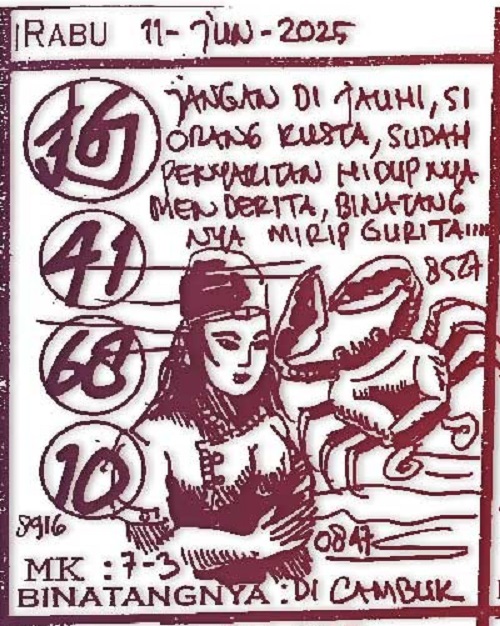 RABU 11-JUN-2025
JANGAN DI JAUHI, SI
ORANG KUSTA, SUDAH
PENYAKITAN HIDUPNYA
MENDERITA, BINATANG
NYA MIRIP GURITA....
41
8527
68
10
8916
0847
MK : 7-3
BINATANGNYA : DI CAMBUK